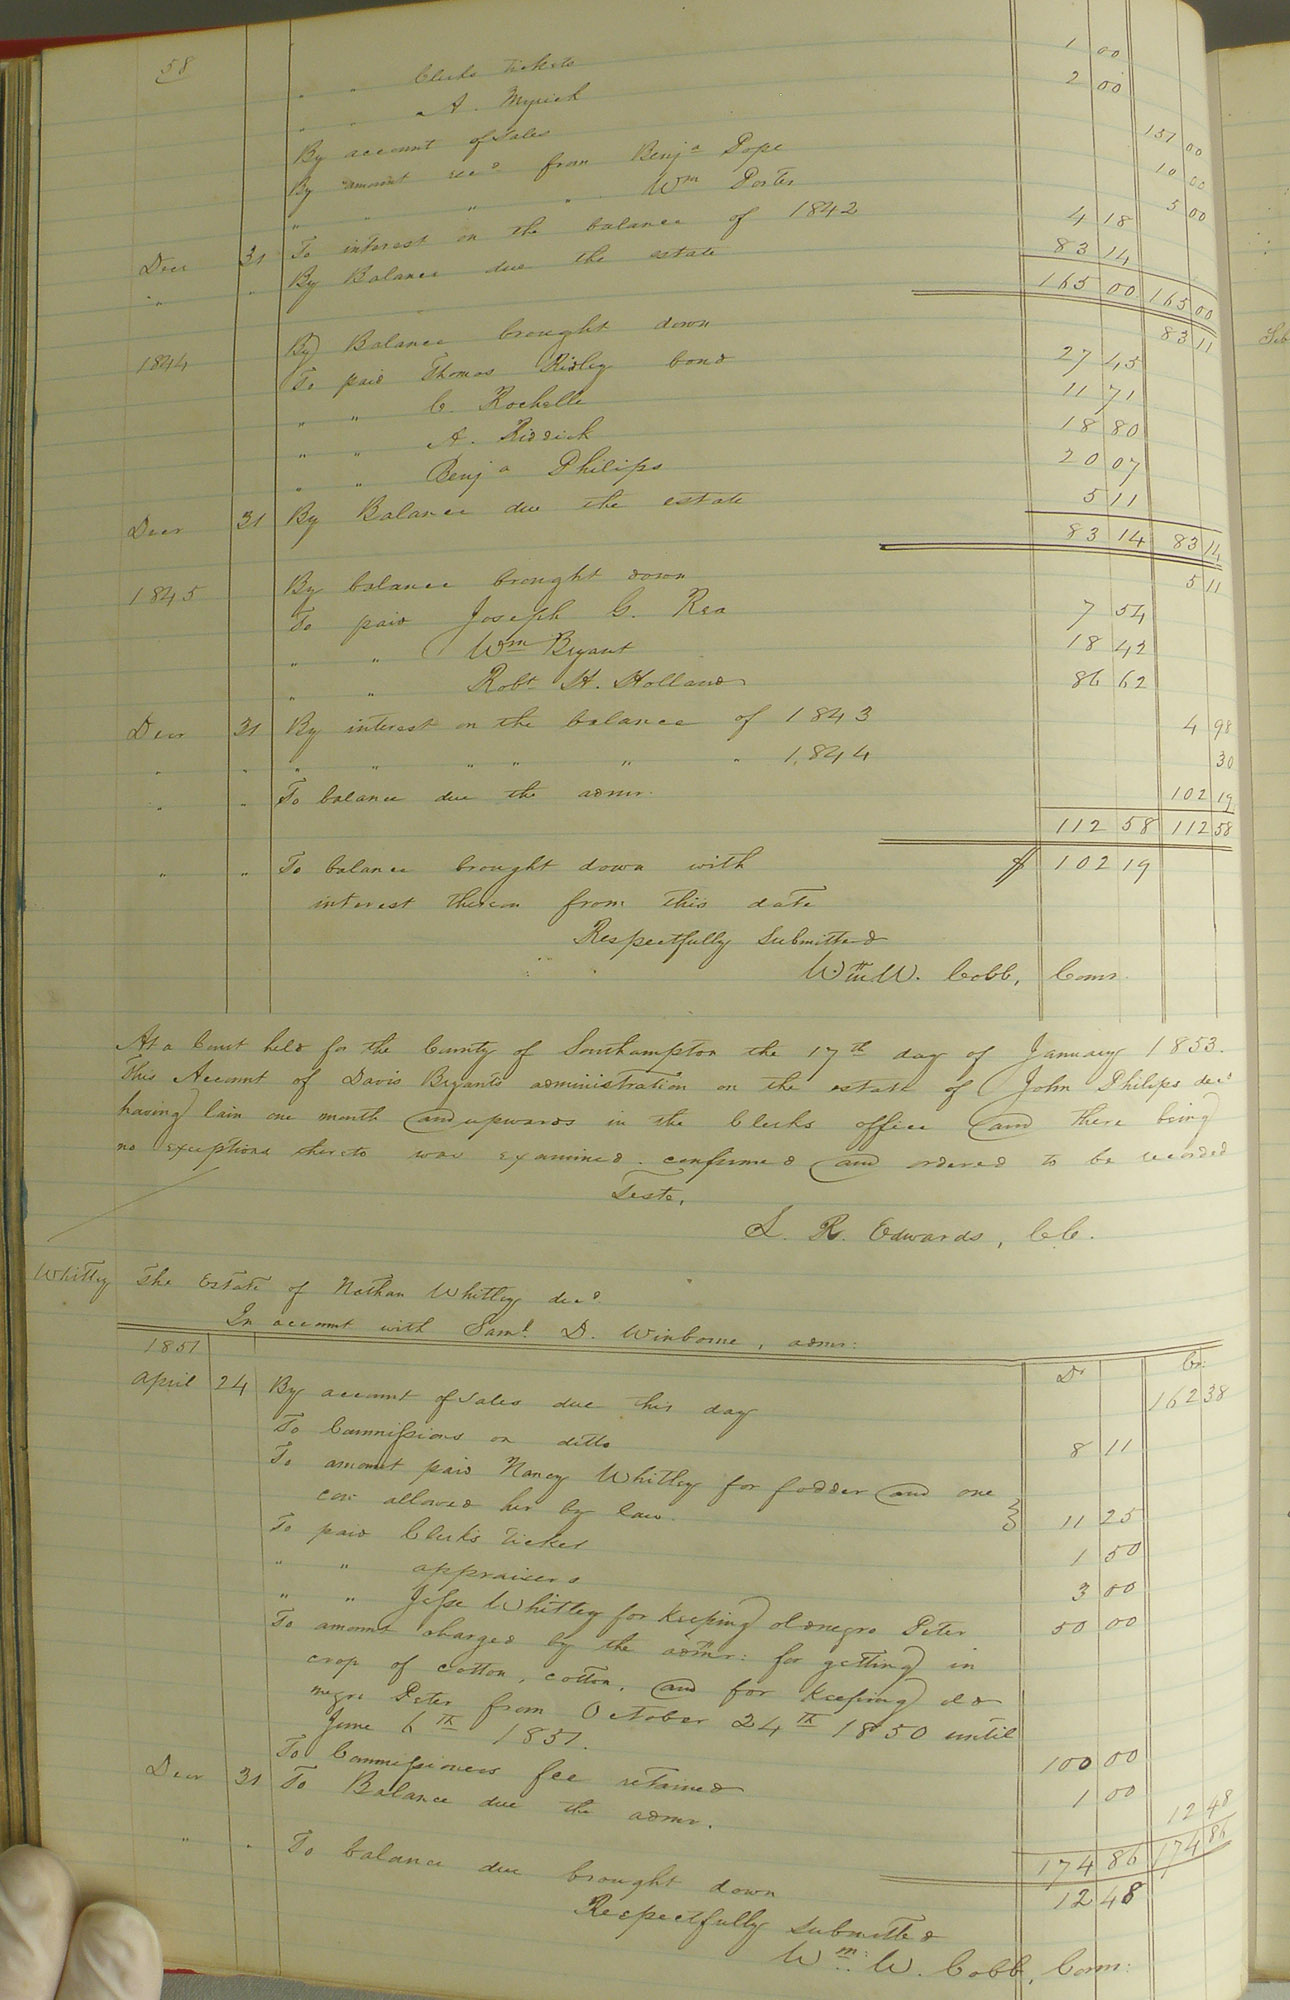 58
" " Clerks tickets 1 00
" " A. Myrick 2 00
By account of sales 151 00
By amount recd from Benja Pope 10 00
" " " Wm Porter 5 00
Decr 31 To interest on the balance of 1842 4 18
" " By Balance due the estate 83 14
165 00 165 00
1844 By Balance brought down 83 11
To paid Thomas Ridley bond 27 45
" " C. Rochelle 11 71
" " A. Riddick 18 80
" " Benja Philips 20 07
Decr 31 By Balance due the estate 5 11
83 14 83 14
1845 By balance brought down 5 11
To paid Joseph G. Rea 7 54
" " Wm Bryant 18 42
" " Robt H. Holland 86 62
Decr 31 By interest on the balance of 1843 4 98
" " " " " " " " 1844 30
" " To balance due the admr. 102 19
112 58 112 58
" " To balance brought down with $ 102 19
interest thereon from this date
Respectfully Submitted
Wm W. Cobb, Comr.
At a Court held for the County of Southampton the 17th day of January 1853.
This Account of Davis Bryants administration on the estate of John Philips decd
having lain one month and upwards in the Clerks office and there being
no exceptions thereto was examined. confirmed and ordered to be recorded
Teste,
L. R. Edwards, C.C.
Whitley The Estate of Nathan Whitley decd
In account with Saml. D. Winborne, admr:
1851 Dr Cr:
April 24 By account of sales due this day 162 38
To Commissions on ditto 8 11
To amount paid Nancy Whitley for fodder and one
cow allowed her by law. 11 25
To paid Clerk's ticket 1 50
" " appraisers 3 00
" " Jesse Whitley for keeping old negro Peter 50 00
To amount charged by the admr: for getting in
crop of cotton, cotton, and for keeping old
negro Peter from October 24th 1850 until
June 6th 1851. 100 00
To Commissioners fee retained 1 00
Decr 31 To Balance due the admr. 12 48
174 86 174 86
" " To balance due brought down 12 48
Respectfully submitted
Wm. W. Cobb, Com: